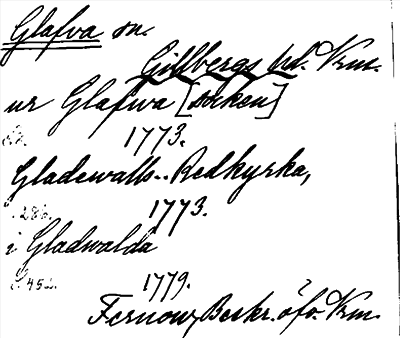 Glafva sn.
Gillbergs hd. Vrm.
ur Glafwa [socken]
1773.
Gladewalls-Redkyrka,
286. 1773.
i Gladwalda
s. 452. 1779.
Fernow, Beskr. öfv. Vrm.